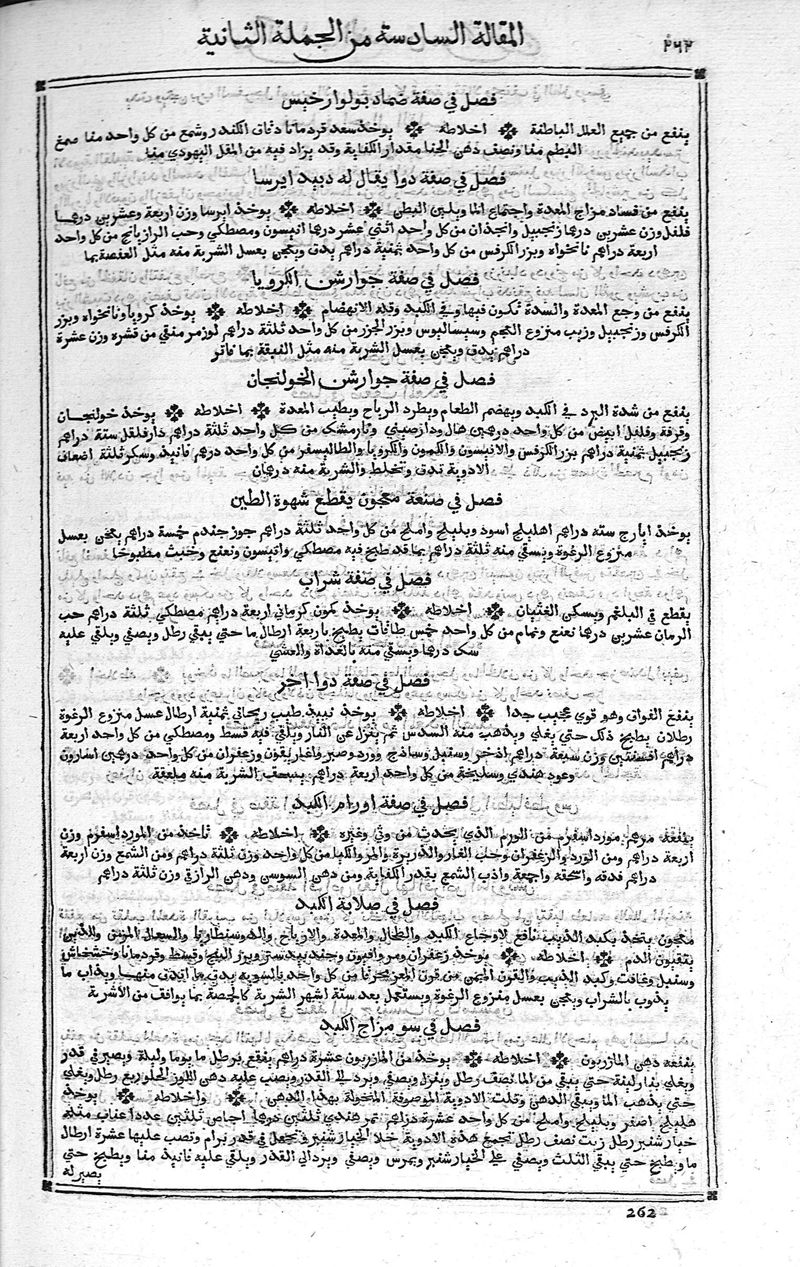 ٢٦٢ المقالة السادسة من الجملة الثانية
فصل في صفة ضماد بولوارخيس
ينفع من جميع العلل الباطنة اخلاطه يوخذ سعد قردمانا دقاق الكندر وشمع من كل واحد منا صمغ
البطم منا ونصف دهن الحنا مقدار الكفاية وقد يزاد فيه من المقل اليهودي منا
فصل في صفة دوا يقال له دبيد ايرسا
ينفع من فساد مزاج المعدة واجتماع الما ويلين البطن اخلاطه يوخذ ايرسا وزن اربعة وعشرين درهما
فلفل وزن عشرين درهما زنجبيل وانجذان من كل واحد اثني عشر درهما انيسون ومصطكي وحب الرازيانج من كل واحد
اربعة دراهم نانخواه وبزر الكرفس من كل واحد ثمنية دراهم يدق ويعجن بعسل الشربة منه مثل العفصة بما
فصل في صفة جوارشن الكرويا
ينفع من وجع المعدة والسدة تكون فيها وفي الكبد وقلة الانهضام اخلاطه يوخذ كرويا ونانخواه وبزر
الكرفس وزنجبيل وزبيب منزوع العجم وسيساليوس وبزر الجزر من كل واحد ثلثة دراهم لوز مر منقي من قشره وزن عشرة
دراهم يدق ويعجن بعسل الشربة منه مثل النبقة بما فاتر
فصل في صفة جوارشن الخولنجان
ينفع من شدة البرد في الكبد ويهضم الطعام ويطرد الرياح ويطيب المعدة اخلاطه يوخذ خولنجان
وقرفة وفلفل ابيض من كل واحد درهمين هال ودارصيني ونارمشك من كل واحد ثلثة دراهم دارفلفل ستة دراهم
زنجبيل ثمنية دراهم بزر الكرفس والانيسون والكمون والكرويا والطاليسفر من كل واحد درهم فانيذ وسكر ثلثة اضعاف
الادوية تدق وتخلط والشربة منه درهمان
فصل في صنعة معجون يقطع شهوة الطين
يوخذ ايارج ستة دراهم اهليلج اسود وبليلج واملج من كل واحد ثلثة دراهم جوز جندم خمسة دراهم يعجن بعسل
منزوع الرغوة ويسقي منه ثلثة دراهم بما قد طبخ فيه مصطكي وانيسون ونعنع وخبث مطبوخا
فصل في صفة شراب
يقطع في البلغم ويسكن الغثيان اخلاطه يوخذ كمون كرماني اربعة دراهم مصطكي ثلثة دراهم حب
الرمان عشرين درهما نعنع ونمام من كل واحد خمس طاقات يطبخ باربعة ارطال ما حتي يبقي رطل ويصفي ويلقي عليه
سك درهما ويسقي منه بالغداة والعشي
فصل في صفة دوا اخر
ينفع الفواق وهو قوي عجيب جدا اخلاطه يوخذ نبيذ طيب ريحاني ثمنية ارطال عسل منزوع الرغوة
رطلان يطبخ ذلك حتي يغلي ويذهب منه السدس ثم ينزل عن النار ويلقي فيه قسط ومصطكي من كل واحد اربعة
دراهم افسنتين وزن سبعة دراهم اذخر وسنبل وساذج وورد وصبر واغاريقون وزعفران من كل واحد درهمين اسارون
وعود هندي وسليخة من كل واحد اربعة دراهم الشربة منه ملعقة
فصل في صفة اورام الكبد
ينفعه مرهم مورداسفرم من الورم الذي يحدث من وثي وغيره اخلاطه تاخذ من المورداسفرم وزن
اربعة دراهم ومن الورد والزعفران وحب الغار والذريرة والمر والكيا من كل واحد وزن ثلثة دراهم ومن الشمع وزن اربعة
دراهم فدقه واسحقه واجمعه واذب الشمع بقدر الكفاية ومن دهن السوسن ودهن الرازقي وزن ثلثة دراهم
فصل في صلابة الكبد
معجون يتخذ بكبد الذيب نافع لاوجاع الكبد والطحال والمعدة والارياح والدوسنطاريا والسعال المزمن والذين
ينفثون الدم اخلاطه يوخذ زعفران ومر وافيون وجندبيدستر وبزر البنج وقسط وقردمانا وخشخاش
وسنبل وغافت وكبد الذيب والقرن اليمن من قرون المعز محرقا من كل واحد بالسوية يدق ما اندق منها ويذاب ما
يذوب بالشراب ويعجن بعسل منزوع الرغوة ويستعمل بعد ستة اشهر الشربة كالحمصة بما يوافق من الاشربة
فصل في سو مزاج الكبد
ينفعه دهن المازريون اخلاطه يوخذ من المازريون عشرة دراهم ينقع برطل ما يوما وليلة ويصير في قدر
ويغلي بنار لينة حتي يبقي من الما نصف رطل وينزل ويصفي ويرد الي القدر ويصب عليه دهن اللوز الحلو ربع رطل ويغلي
حتي يذهب الما ويبقي الدهن وتلت الادوية الموصوفة المنخولة بهذا الدهن واخلاطه يوخذ
هليلج اصفر وبليلج واملج من كل واحد عشرة دراهم تمر هندي ثلثين درهما اجاص ثلثين عددا عناب مثله
خيارشنبر رطل زيت نصف رطل تجمع هذه الادوية خلا الخيارشنبر وتجعل في قدر برام وتصب عليها عشرة ارطال
ما ويطبخ حتي يبقي الثلث ويصفي علي الخيارشنبر ويمرس ويصفي ويرد الي القدر ويلقي عليه فانيذ منا ويطبخ حتي
يصير له
262